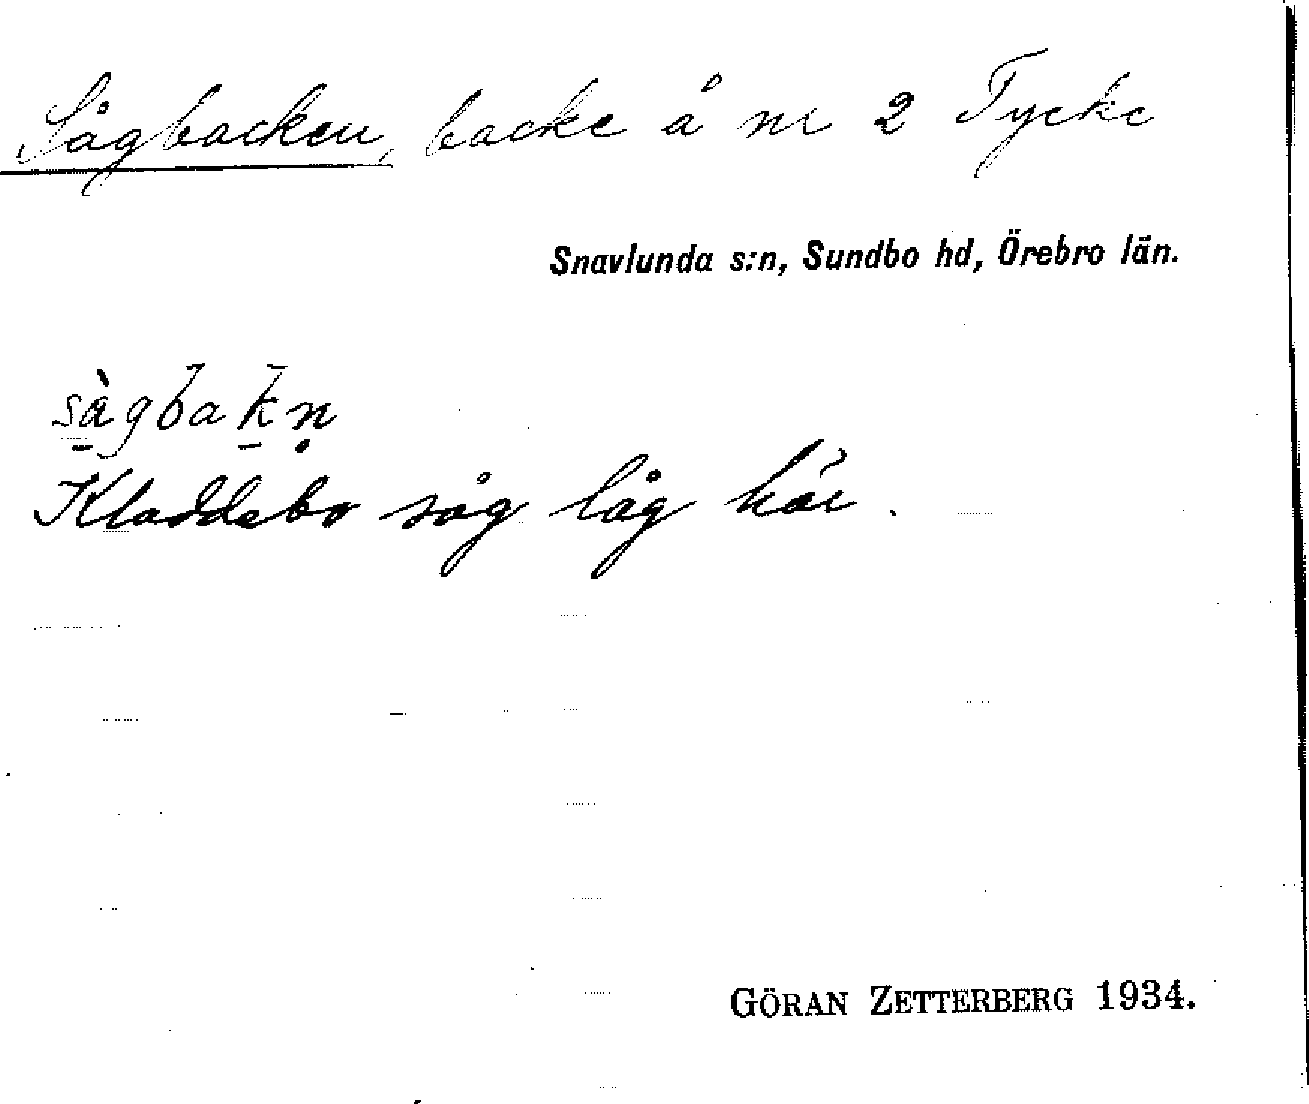 Sågbacken, backe å nr 2 Tycke
Snavlunda s:n, Sundbo hd, Örebro län.
sàgbakn
Kladdebo såg låg här.
GÖRAN ZETTERBERG 1934.